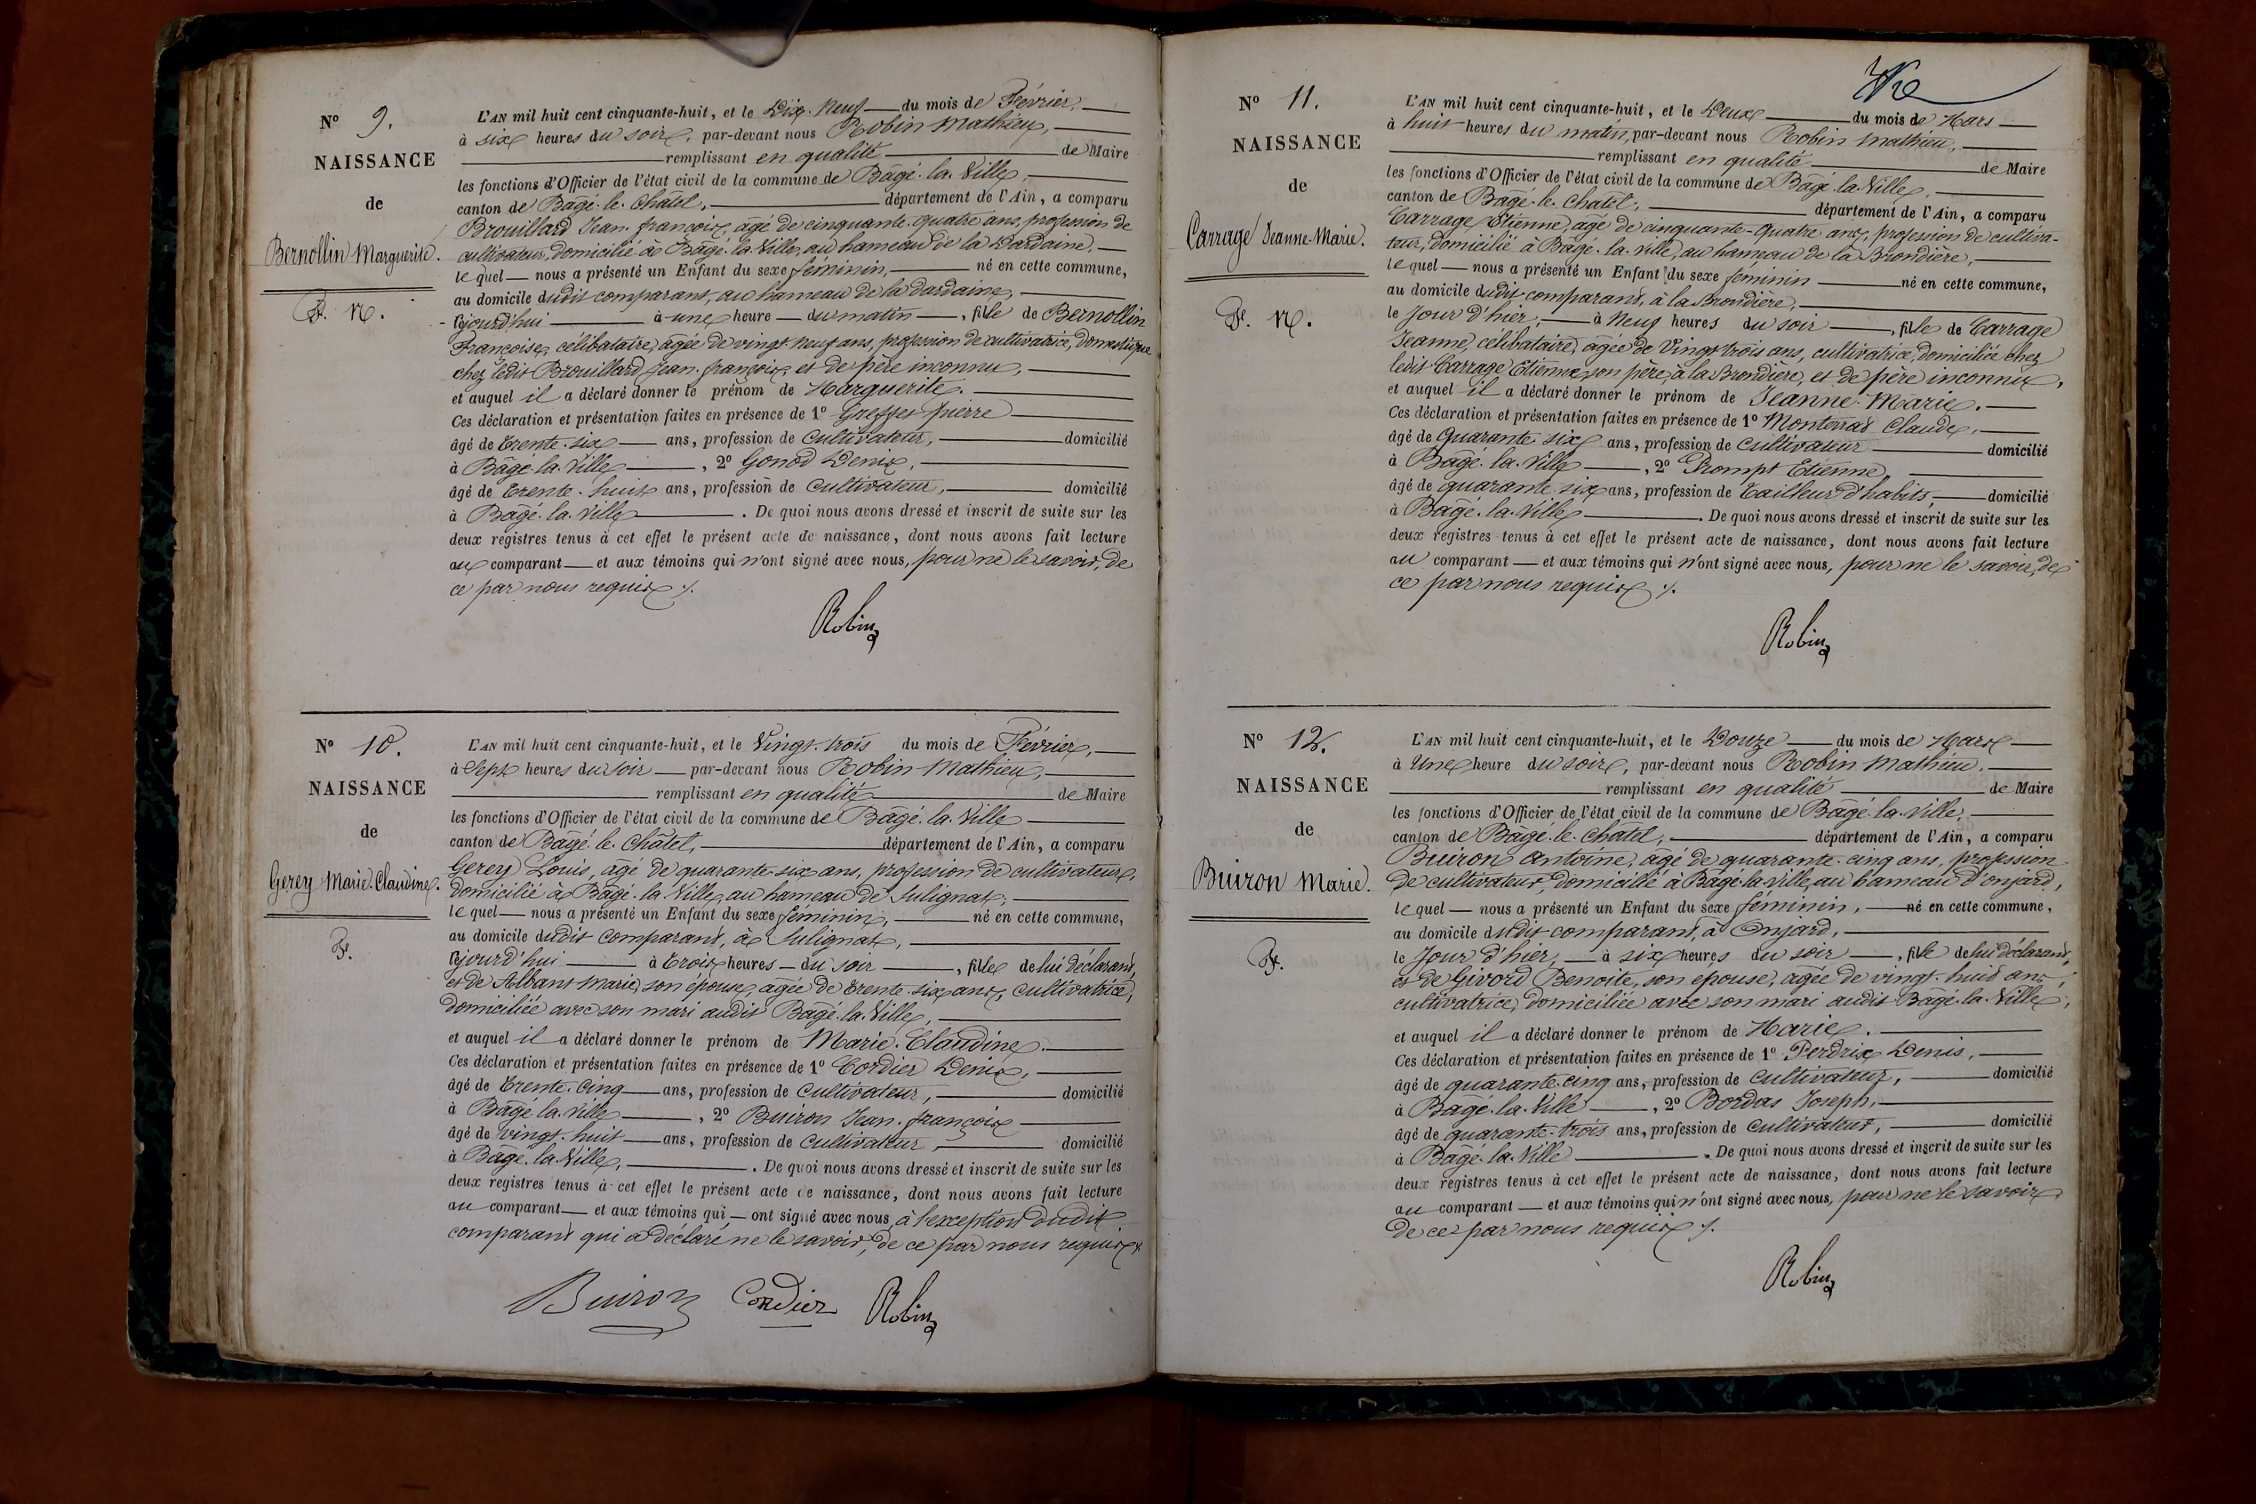 Nº 9.
NAISSANCE
de
Bernollin Marguerite.
F. N.
L'AN mil huit cent cinquante-huit, et le Dix-Neuf du mois de Février,
à six heures du soir, par-devant nous Robin Mathieu,
remplissant en qualité de Maire
les fonctions d'Officier de l'état civil de la commune de Bâgé-la-Ville,
canton de Bâgé-le-Châtel, département de l'Ain, a comparu
Brouillard Jean-françois, âgé de cinquante-quatre ans, profession de
cultivateur, domicilié à Bâgé-la-Ville, au hameau de la Dardaine,
lequel nous a présenté un Enfant du sexe féminin, né en cette commune,
au domicile dudit comparant, au hameau de la Dardaine,
jourd'hui à une heure du matin, fille de Bernollin
Françoise, célibataire, âgée de vingt-neuf ans, profession de cultivatrice, domestique
chez ledit Brouillard Jean-françois, et de père inconnu,
et auquel il a déclaré donner le prénom de Marguerite.
Ces déclaration et présentation faites en présence de 1º Greffet pierre
âgé de Trente-six ans, profession de Cultivateur, domicilié
à Bâgé-la-Ville, 2º Gonod Denis,
âgé de Trente-huit ans, profession de Cultivateur, domicilié
à Bâgé-la-Ville. De quoi nous avons dressé et inscrit de suite sur les
deux registres tenus à cet effet le présent acte de naissance, dont nous avons fait lecture
au comparant et aux témoins qui n'ont signé avec nous, pour ne le savoir, de
ce par nous requis ./.
Robin
Nº 10.
NAISSANCE
de
Gerey Marie-Claudine.
F.
L'AN mil huit cent cinquante-huit, et le Vingt-trois du mois de Février,
à Sept heures du soir par-devant nous Robin Mathieu,
remplissant en qualité de Maire
les fonctions d'Officier de l'état civil de la commune de Bâgé-la-Ville
canton de Bâgé-le-Châtel, département de l'Ain, a comparu
Gerey Louis, âgé de quarante-six ans, profession de cultivateur,
domicilié à Bâgé-la-Ville, au hameau de Sulignat,
lequel nous a présenté un Enfant du sexe féminin, né en cette commune,
au domicile dudit comparant, à Sulignat,
jourd'hui à Trois heures du soir, fille de lui déclarant,
et de Albant Marie, son épouse, âgée de trente-six ans, cultivatrice,
domiciliée avec son mari audit Bâgé-la-Ville,
et auquel il a déclaré donner le prénom de Marie-Claudine.
Ces déclaration et présentation faites en présence de 1º Cordier Denis,
âgé de Trente-Cinq ans, profession de Cultivateur, domicilié
à Bâgé-la-Ville, 2º Buiron Jean-françois
âgé de vingt-huit ans, profession de Cultivateur, domicilié
à Bâgé-la-Ville, . De quoi nous avons dressé et inscrit de suite sur les
deux registres tenus à cet effet le présent acte de naissance, dont nous avons fait lecture
au comparant et aux témoins qui ont signé avec nous, à l'exception dudit
comparant qui a déclaré ne le savoir, de ce par nous requis
Buiron Cordier Robin
Nº 11.
NAISSANCE
de
Carrage Jeanne-Marie.
F. N.
L'AN mil huit cent cinquante-huit, et le Deux du mois de Mars
à huit heures du matin, par-devant nous Robin Mathieu,
remplissant en qualité de Maire
les fonctions d'Officier de l'état civil de la commune de Bâgé-la-Ville,
canton de Bâgé-le-Châtel, département de l'Ain, a comparu
Carrage Etienne, âgé de cinquante-quatre ans, profession de cultiva-
teur, domicilié à Bâgé-la-ville, au hameau de la Brondière,
lequel nous a présenté un Enfant du sexe féminin né en cette commune,
au domicile dudit comparant, à la Brondière,
le jour d'hier, à Neuf heures du soir, fille de Carrage
Jeanne, célibataire, âgée de Vingt-trois ans, cultivatrice, domiciliée chez
ledit Carrage Etienne, son père, à la Brondière, et de père inconnu,
et auquel il a déclaré donner le prénom de Jeanne-Marie.
Ces déclaration et présentation faites en présence de 1º Monterrad Claude,
âgé de Quarante-six ans, profession de cultivateur domicilié
à Bâgé-la-Ville, 2º Prompt Etienne,
âgé de quarante-six ans, profession de Tailleur d'habits, domicilié
à Bâgé-la-Ville. De quoi nous avons dressé et inscrit de suite sur les
deux registres tenus à cet effet le présent acte de naissance, dont nous avons fait lecture
au comparant et aux témoins qui n'ont signé avec nous, pour ne le savoir, de
ce par nous requis ./.
Robin
Nº 12.
NAISSANCE
de
Buiron Marie.
F.
L'AN mil huit cent cinquante-huit, et le Douze du mois de Mars
à Une heure du soir, par-devant nous Robin Mathieu.
remplissant en qualité de Maire
les fonctions d'Officier de l'état civil de la commune de Bâgé-la-Ville,
canton de Bâgé-le-Châtel, département de l'Ain, a comparu
Buiron Antoine, âgé de quarante-cinq ans, profession
de cultivateur, domicilié à Bâgé-la-Ville, au hameau d'onjard,
lequel nous a présenté un Enfant du sexe féminin, né en cette commune,
au domicile dudit comparant, à Onjard,
le Jour d'hier, à six heures du soir, fille de lui déclarant,
et de Givord Benoite, son épouse, âgée de vingt-huit ans,
cultivatrice, domiciliée avec son mari audit Bâgé-la-Ville,
et auquel il a déclaré donner le prénom de Marie.
Ces déclaration et présentation faites en présence de 1º Perdrix Denis,
âgé de quarante-cinq ans, profession de Cultivateur, domicilié
à Bâgé-la-Ville, 2º Bordas Joseph,
âgé de quarante-trois ans, profession de Cultivateur, domicilié
à Bâgé-la-Ville. De quoi nous avons dressé et inscrit de suite sur les
deux registres tenus à cet effet le présent acte de naissance, dont nous avons fait lecture
au comparant et aux témoins qui n'ont signé avec nous, pour ne le savoir
de ce par nous requis ./.
Robin